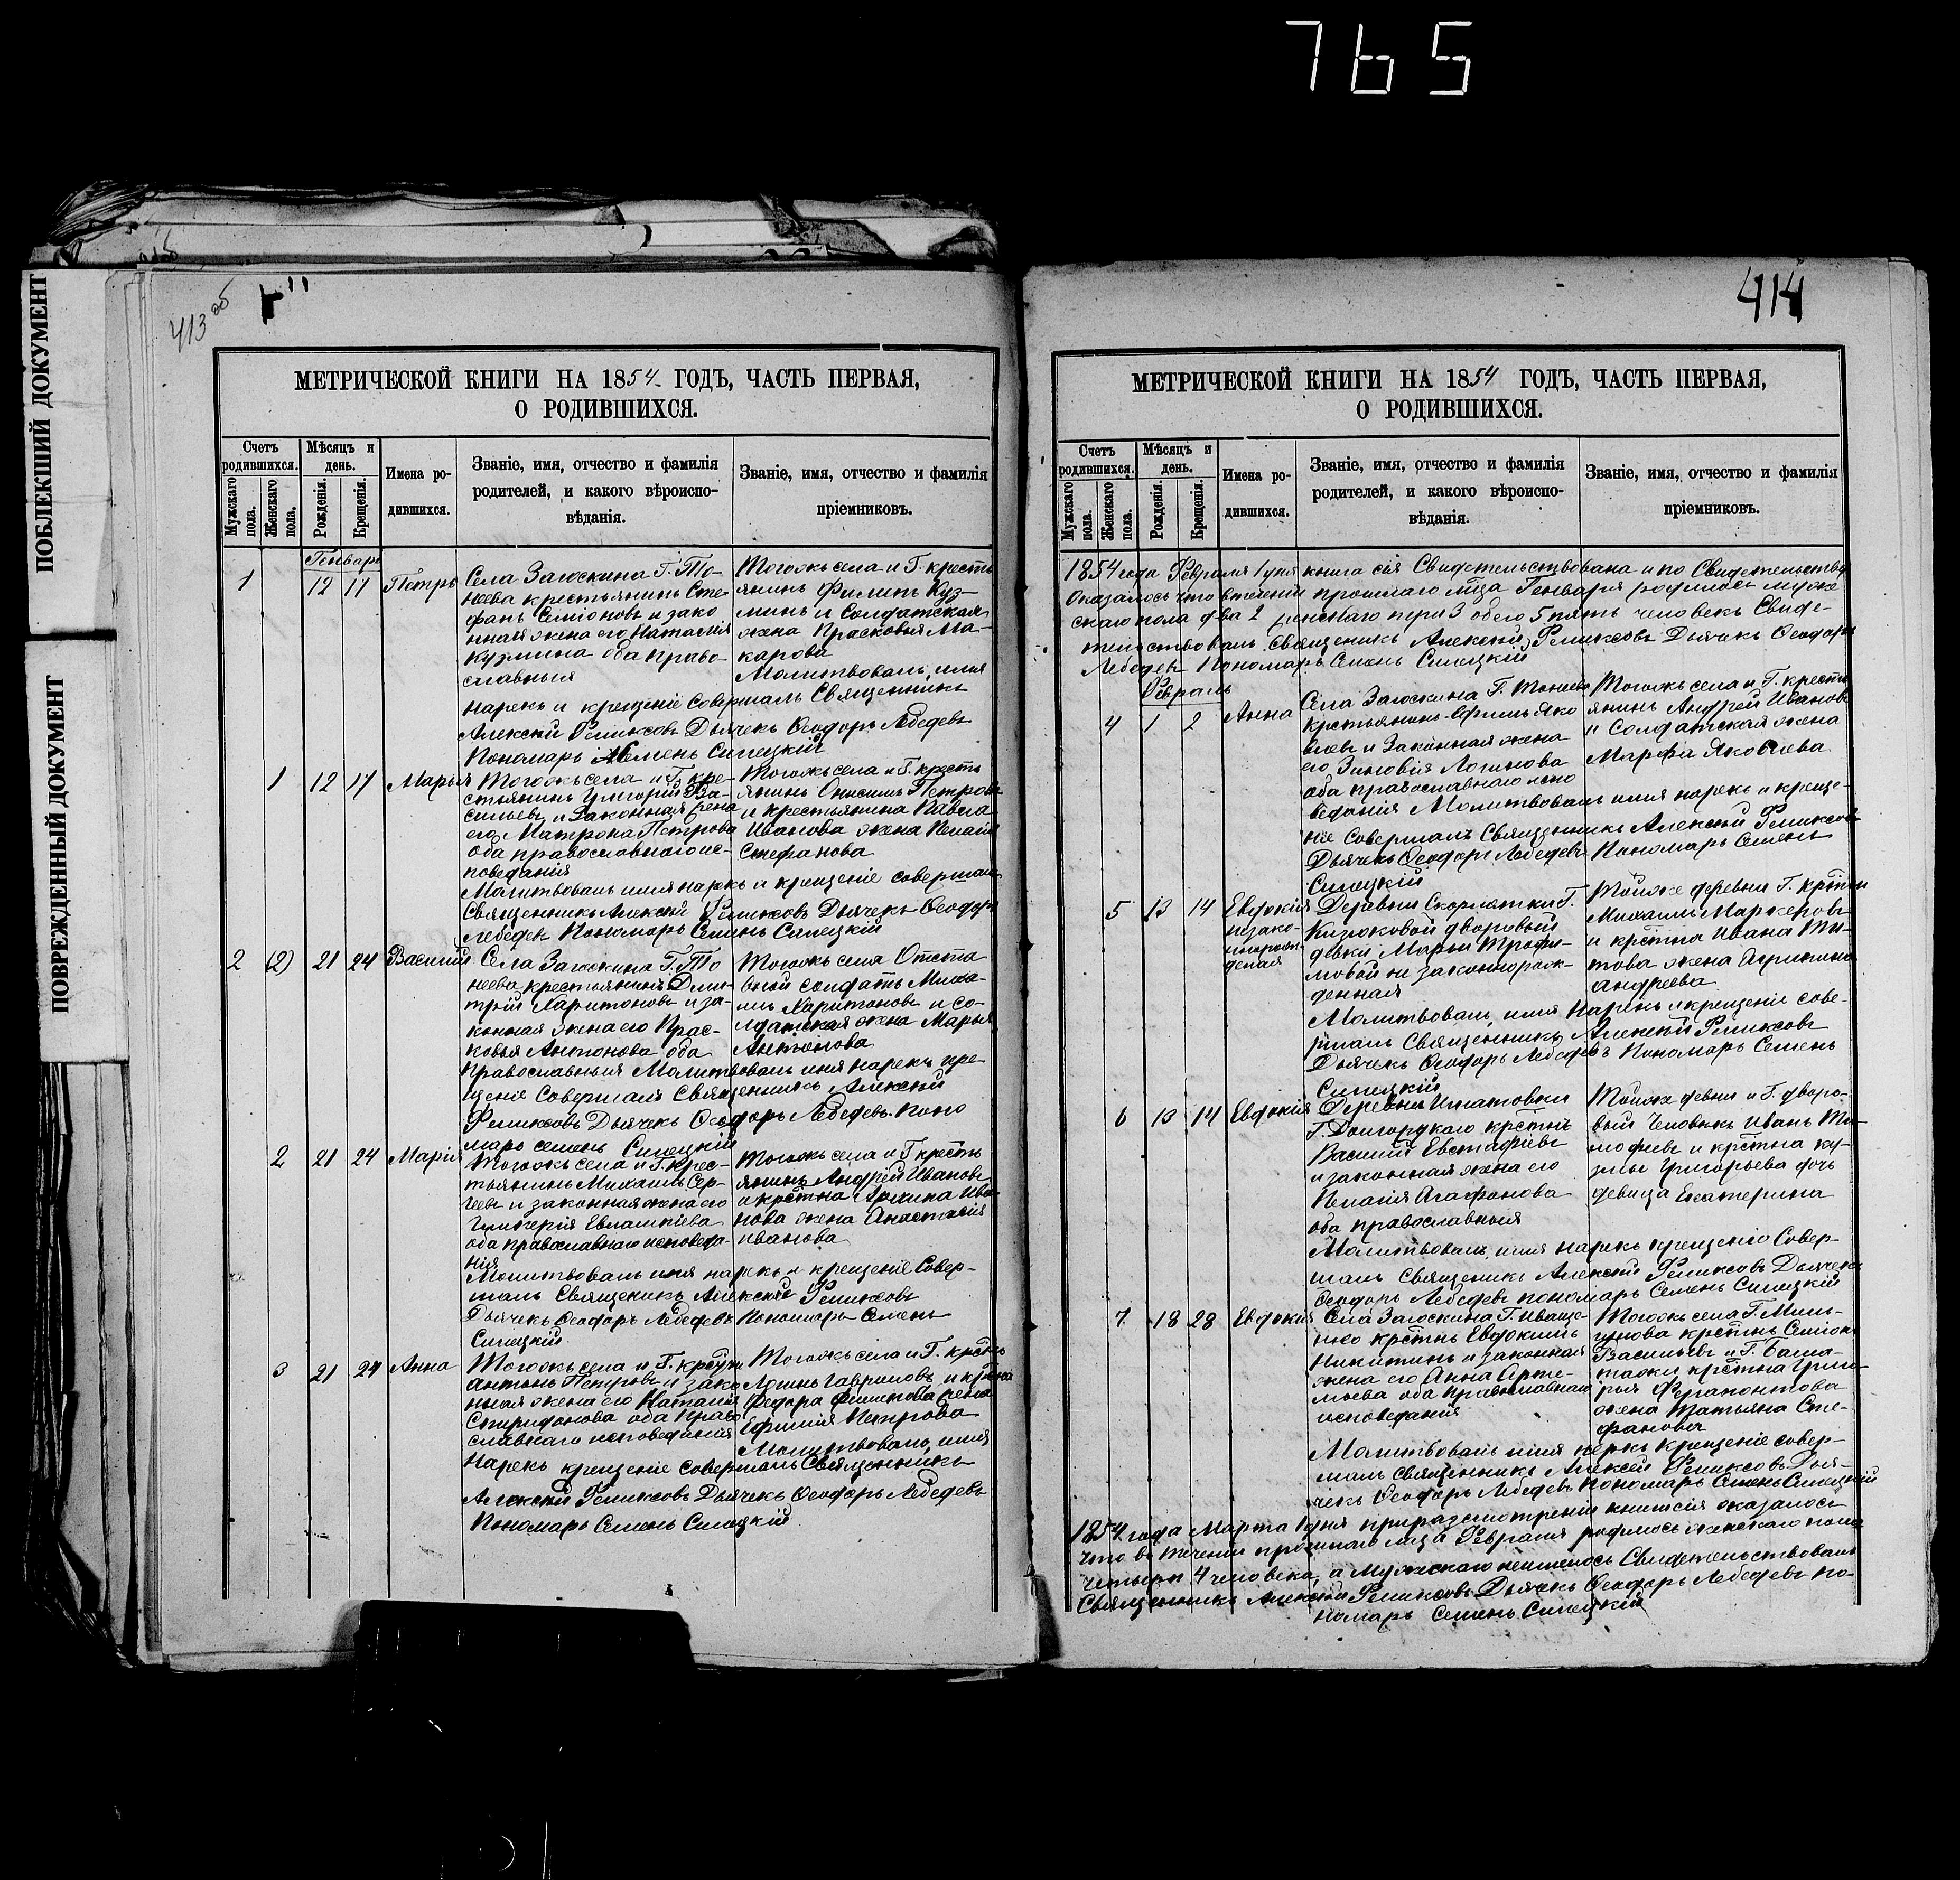 765
ПОБЛЕКШИЙ ДОКУМЕНТ
ПОВРЕЖДЕННЫЙ ДОКУМЕНТ
413 об
МЕТРИЧЕСКОЙ КНИГИ НА 1854 ГОДЪ, ЧАСТЬ ПЕРВАЯ,
О РОДИВШИХСЯ.
Счетъ родившихся.
Мѣсяцъ и день.
Имена родившихся.
Званіе, имя, отчество и фамилія
родителей, и какого вѣроиспо-
вѣданія.
Званіе, имя, отчество и фамилія
пріемниковъ.
Мужскаго пола.
Женскаго пола.
Рожденія.
Крещенія.
Генварь
1 12 17 Петръ
Села Загоскина Г. То-
неева крестьянинъ Сте-
фанъ Семіоновъ и зако
нная жена его Наталія
Кузмина оба право-
славныя
Тогожъ села и Г. кресть
янинъ Филипъ Куз-
минъ и Солдатская
жена Прасковья Ма-
карова
Молитвовалъ, имя
нарекъ и крещеніе совершалъ Священникъ
Алексій Феликсовъ Дьячекъ Ѳеодоръ Лебедевъ
Пономарь Семенъ Силецкій
1 12 17 Марья
Тогожъ села и Г. кре-
стьянинъ Григорій Ва-
сильевъ и Законная жена
его Матрона Петрова
оба православнаго ис-
поведанія
Тогожъ села и Г. кресть
янинъ Онисимъ Петровъ
и крестьянина Павла
Иванова жена Пелагія
Стефанова
Молитвовалъ имя нарекъ и крещеніе совершалъ
Священникъ Алексій Феликсовъ Дьячекъ Ѳеодоръ
Лебедевъ Пономарь Семенъ Силецкій
2 (2) 21 24 Василій
Села Загоскина Г. То
неева крестьянинъ Дми-
трій Харитоновъ и за-
конная жена его Прас-
ковья Антонова оба
Тогожъ села Отста
вной солдатъ Миха-
илъ Харитоновъ и со-
лдатская жена Марья
Антонова
православныя Молитвовалъ имя нарекъ кре-
щеніе совершалъ Священникъ Алексій
Феликсовъ Дьячекъ Ѳеодоръ Лебедевъ Поно
марь семенъ Силецкій
2 21 24 Марія
Тогожъ села и Г. крес-
тьянинъ Михаилъ Сер-
геевъ и законная жена его
Гликерія Евлампіева
оба православнаго исповеда-
нія
Тогожъ села и Г кресть
янинъ Андрей Ивановъ
и крестна Архипа Ива
нова жена Анастасія
иванова
Молитвовалъ имя нарекъ и крещеніе Совер-
шалъ Священикъ Алексій Феликсовъ
Дьячекъ Ѳеодоръ Лебедевъ Пономарь Семенъ
Силецкій
3 21 24 Анна
Тогожъ села и Г. крстнъ
Антонъ Петровъ и зако
нная жена его Наталія
Спиридонова оба Право
славнаго исповеданія
Тогожъ села и Г. крстнъ
Логинъ Гавриловъ и крстна
Федора Филипова жена
Ефимія Петрова
Молитвовалъ, имя
Нарекъ крещеніе совершалъ Священникъ
Алексій Феликсовъ Дьячекъ Ѳеодоръ Лебедевъ
Пономарь Семенъ Силецкій
414
МЕТРИЧЕСКОЙ КНИГИ НА 1854 ГОДЪ, ЧАСТЬ ПЕРВАЯ,
О РОДИВШИХСЯ.
Счетъ родившихся.
Мѣсяцъ и день.
Имена родившихся.
Званіе, имя, отчество и фамилія
родителей, и какого вѣроиспо-
вѣданія.
Званіе, имя, отчество и фамилія
пріемниковъ.
Мужскаго пола.
Женскаго пола.
Рожденія.
Крещенія.
1854 года Февраля 1 дня книга сія Свидетельствована и по Свидетельству
Оказалось что втеченіи прошлаго мца Генваря родилось муже
скаго пола два 2 женскаго три 3 обего 5 пять человекъ Свиде-
тельствовалъ Священикъ Алексій Феликсовъ Дьячекъ Ѳеодоръ
Лебедевъ Пономарь Семенъ Силецкій
Февраль
4 1 2 Анна
Села Загоскина Г. Тонеева
Крстьянинъ Ефимъ Яко
влевъ и Законная жена
его Зиновія Логинова
оба православнаго испо
веданія
Тогожъ села и Г. кресть
янинъ Андрей Ивановъ
и Солдатская жена
Марфа Яковлева
Молитвовалъ имя нарекъ и креще-
ніе совершалъ Священникъ Алексій Феликсовъ
Дьячекъ Ѳеодоръ Лебедевъ Пономарь Семенъ
Силецкій
5 13 14 Евдокія
незако-
норож-
деная
Деревни Скорлятки Г.
Кизюковой дворовой
девки Марьи Трофи-
мовой не законнорож-
денная
Тойже деревни Г. крстнъ
Михаилъ Маркеловъ
и крстна Ивана Ти-
това жена Агрипина
Андреева
Молитвовалъ, имя нарекъ и крещеніе сове-
ршалъ Священникъ Алексій Феликсовъ
Дьячекъ Ѳеодоръ Лебедевъ Пономарь Семенъ
Силецкій
6 13 14 Евдокія
Деревни Игнатовки
Г. Долгорукаго крстнъ
Василій Евстафіевъ
и законная жена его
Пелагія Агафонова
оба православныя
Тойже девни и Г. дворо-
вый Человекъ иванъ Ти-
мофеевъ и крстна ку-
змы Григорьева дочь
девица Екатерина
Молитвовалъ, имя нарекъ крещеніе Совер-
шалъ Священикъ Алексій Феликсовъ Дьячекъ
Ѳеодоръ Лебедевъ пономарь Семенъ Силецкій
7 18 28 Евдокія
Села Загоскина Г. Иваще-
нко крстнъ Евдокимъ
Никитинъ и законная
жена его Анна Арте-
мьева оба православнаго
исповеданія
Тогожъ села Г. Миль-
гунова крстнъ Семіонъ
Васильевъ и Г. Баша-
тожи крстна Григо-
рья Ферапонтова
жена Татьяна Сте-
фанова
Молитвовалъ имя неркъ крещеніе совер-
шалъ священникъ Алексей Феликсовъ Дья-
чекъ Ѳеодоръ Лебедевъ Пономарь Семенъ Силецкій
1854 года Марта 1 дня приразсмотреніи книги сія оказалось
что въ теченіи прошлаго мца Февраля родилось женскаго пола
четыри 4 человека, а Мужскаго неимелось Свидетельствовалъ
Священникъ Алексій Феликсовъ Дьячекъ Ѳеодоръ Лебедевъ по-
номарь семенъ Силецкій